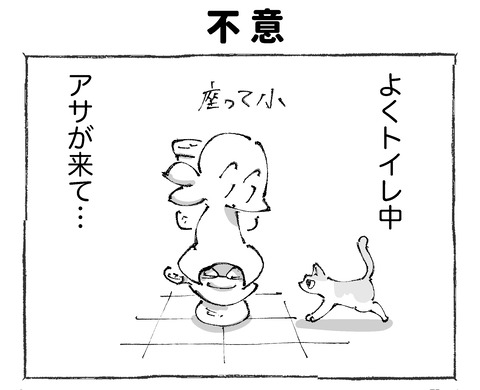 不意
よくトイレ中
座って小
アサが来て…